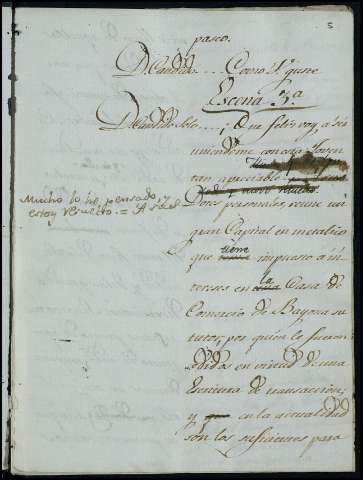 5
paseo.
D. Candido.... Como V. guste
Escena 3.a
D. Candido Solo ....; Que feliz voy, a ser
uniendome con esta Joven
tan apreciable
Mucho lo he pensado, y
estoy resuelto. =
Dotes personales, reune un
gran Capital en metalico
que tiene impuesto à in-
tereses en la Casa de
Comercio de Bayona su
tutor, por quien le fueron
didos en virtud de una
Escritura de transaccion;
y en la actualidad
son los suficientes para